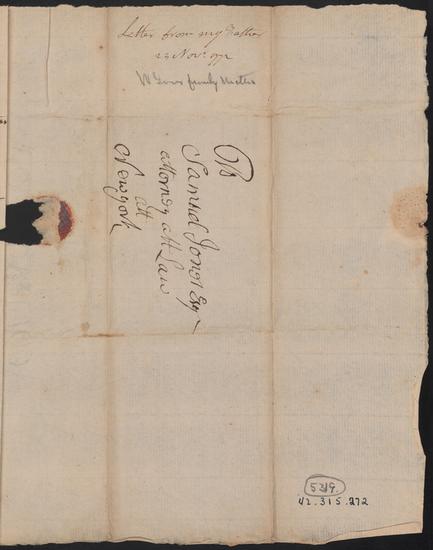 Letter from my Father
23 Novr. 1772
family Matters
To
Samuel Jones Esqr
attorney att Law
att
New york
5219.
42.315.272